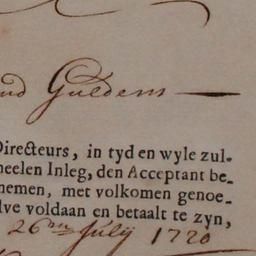 nd Guldens
Directeurs, in tyd en wyle zul-
heelen Inleg, den Acceptant be-
nemen, met volkomen genoe-
lve voldaan en betaalt te zyn,
26 July 1720